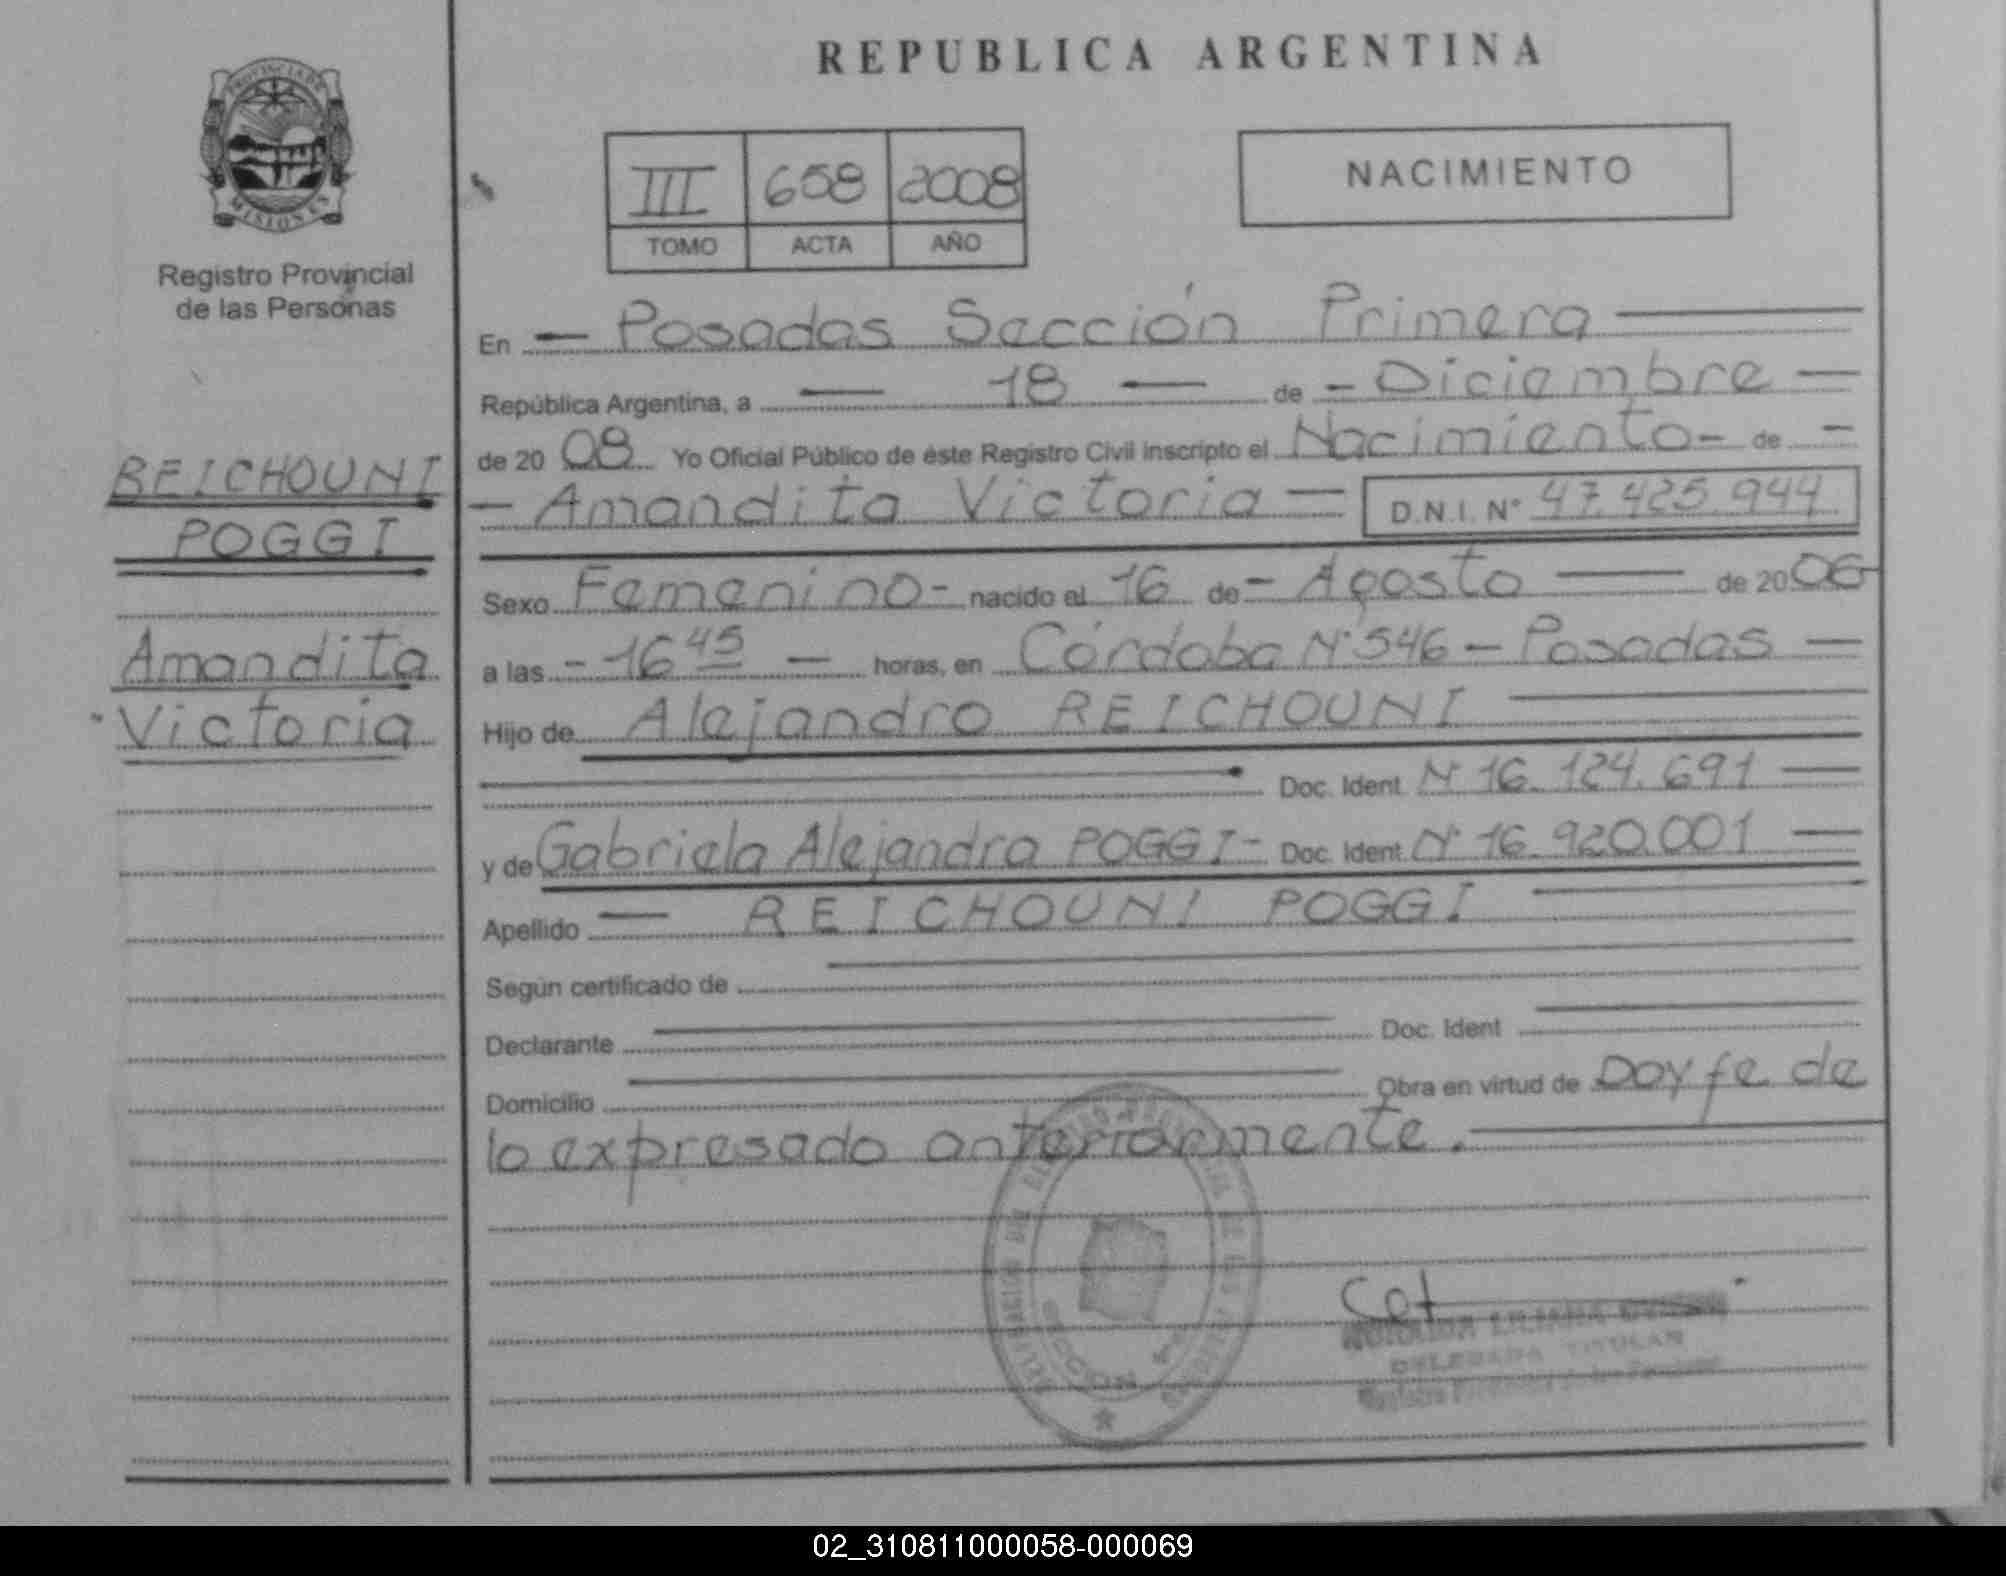 REPUBLICA ARGENTINA
PROVINCIA DE
MISIONES
Registro Provincial
de las Personas
III 658 2008
TOMO ACTA AÑO
NACIMIENTO
REICHOUNI
POGGI
Amandita
Victoria
En — Posadas Sección Primera —
República Argentina, a — 18 — de - Diciembre —
de 20 08 Yo Oficial Público de éste Registro Civil inscripto el Nacimiento - de -
- Amandita Victoria = D.N.I. N° 47.425.944
Sexo Femenino - nacido el 16 de - Agosto — de 20 06
a las - 16 45 — horas, en Córdoba N° 546 - Posadas —
Hijo de Alejandro REICHOUNI —
Doc. Ident N° 16.124.691 —
y de Gabriela Alejandra POGGI - Doc. Ident N° 16.920.001 —
Apellido — REICHOUNI POGGI —
Según certificado de —
Declarante — Doc. Ident —
Domicilio — Obra en virtud de Doy fe de
lo expresado anteriormente. —
LILIANA
DELEGADA TITULAR
02_310811000058-000069